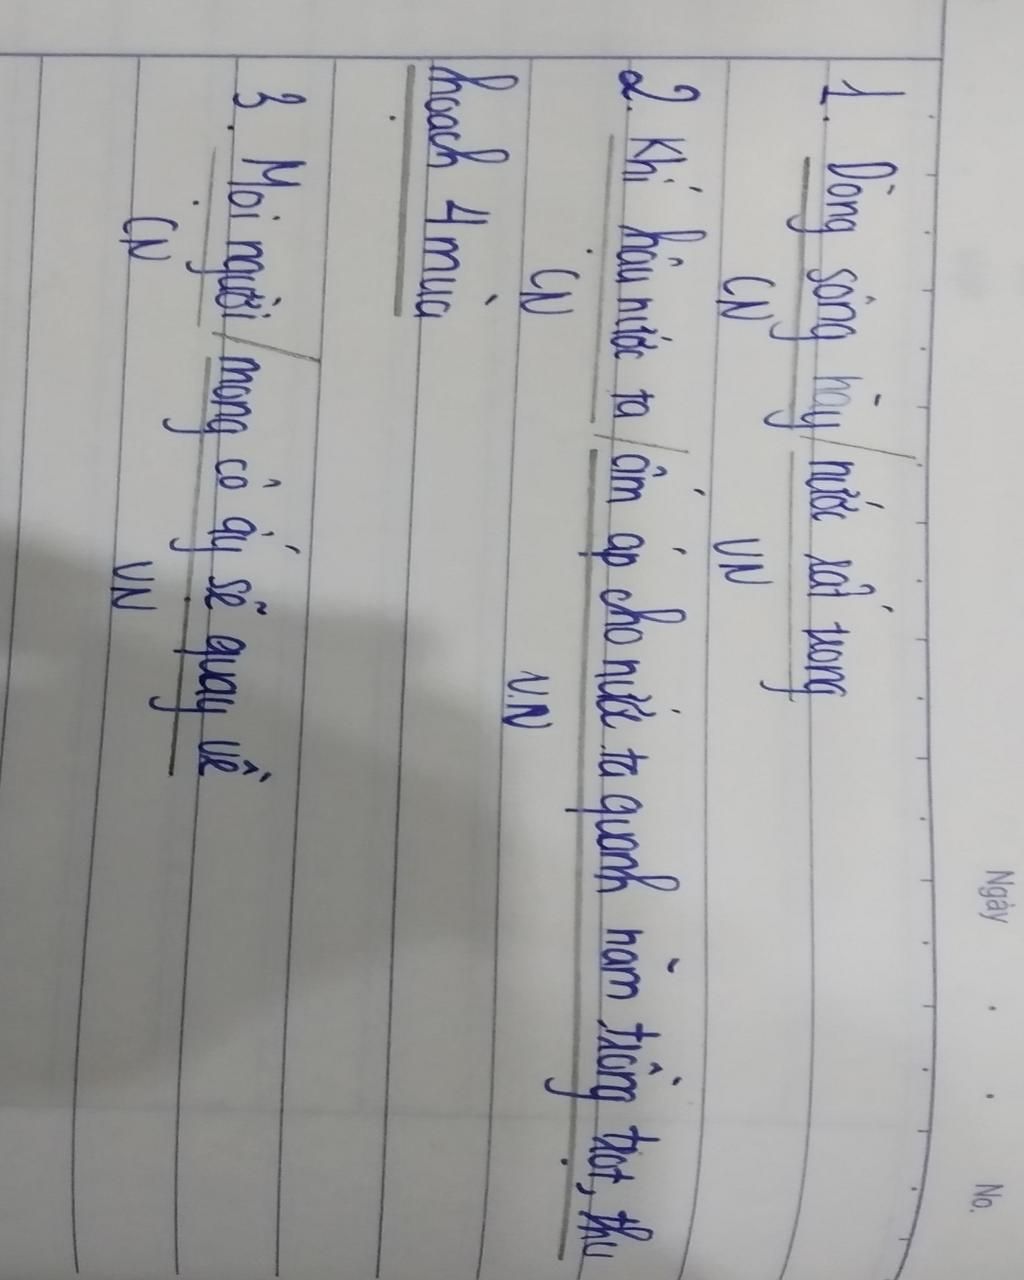 Ngày . . No.
1. Dòng sông này / nước rất trong
CN VN
2. Khí hậu nước ta / ấm áp cho nước ta quanh năm trồng trọt, thu
CN VN
hoạch 4 mùa
3. Mọi người / mong cô ấy sẽ quay về
CN VN